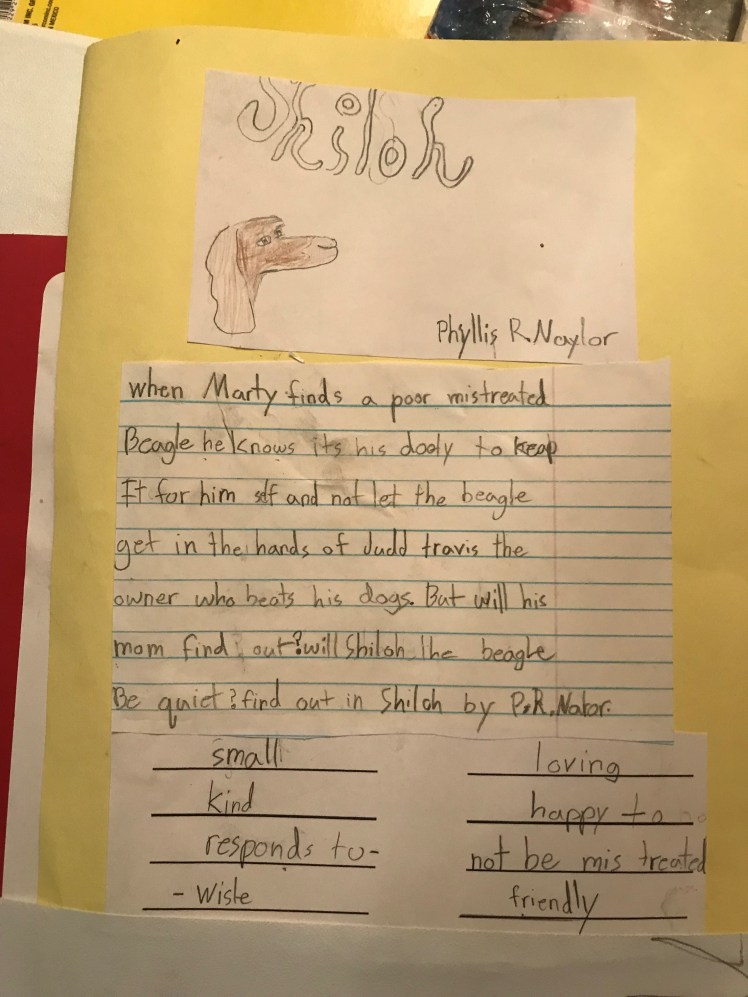 Shiloh
Phyllis R. Naylor
when Marty finds a poor mistreated
Beagle he knows its his dooly to keep
It for him self and not let the beagle
get in the hands of Judd travis the
owner who beats his dogs. But will his
mom find out? will Shiloh the beagle
Be quiet? find out in Shiloh by P.R. Nalor.
small
kind
responds to-
- Wisle
loving
happy to
not be mis treated
friendly